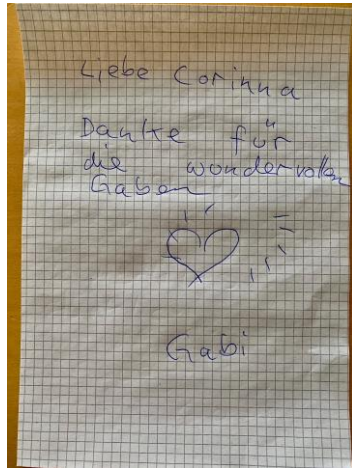 Liebe Corinna
Danke für
die wundervollen
Gaben
Gabi